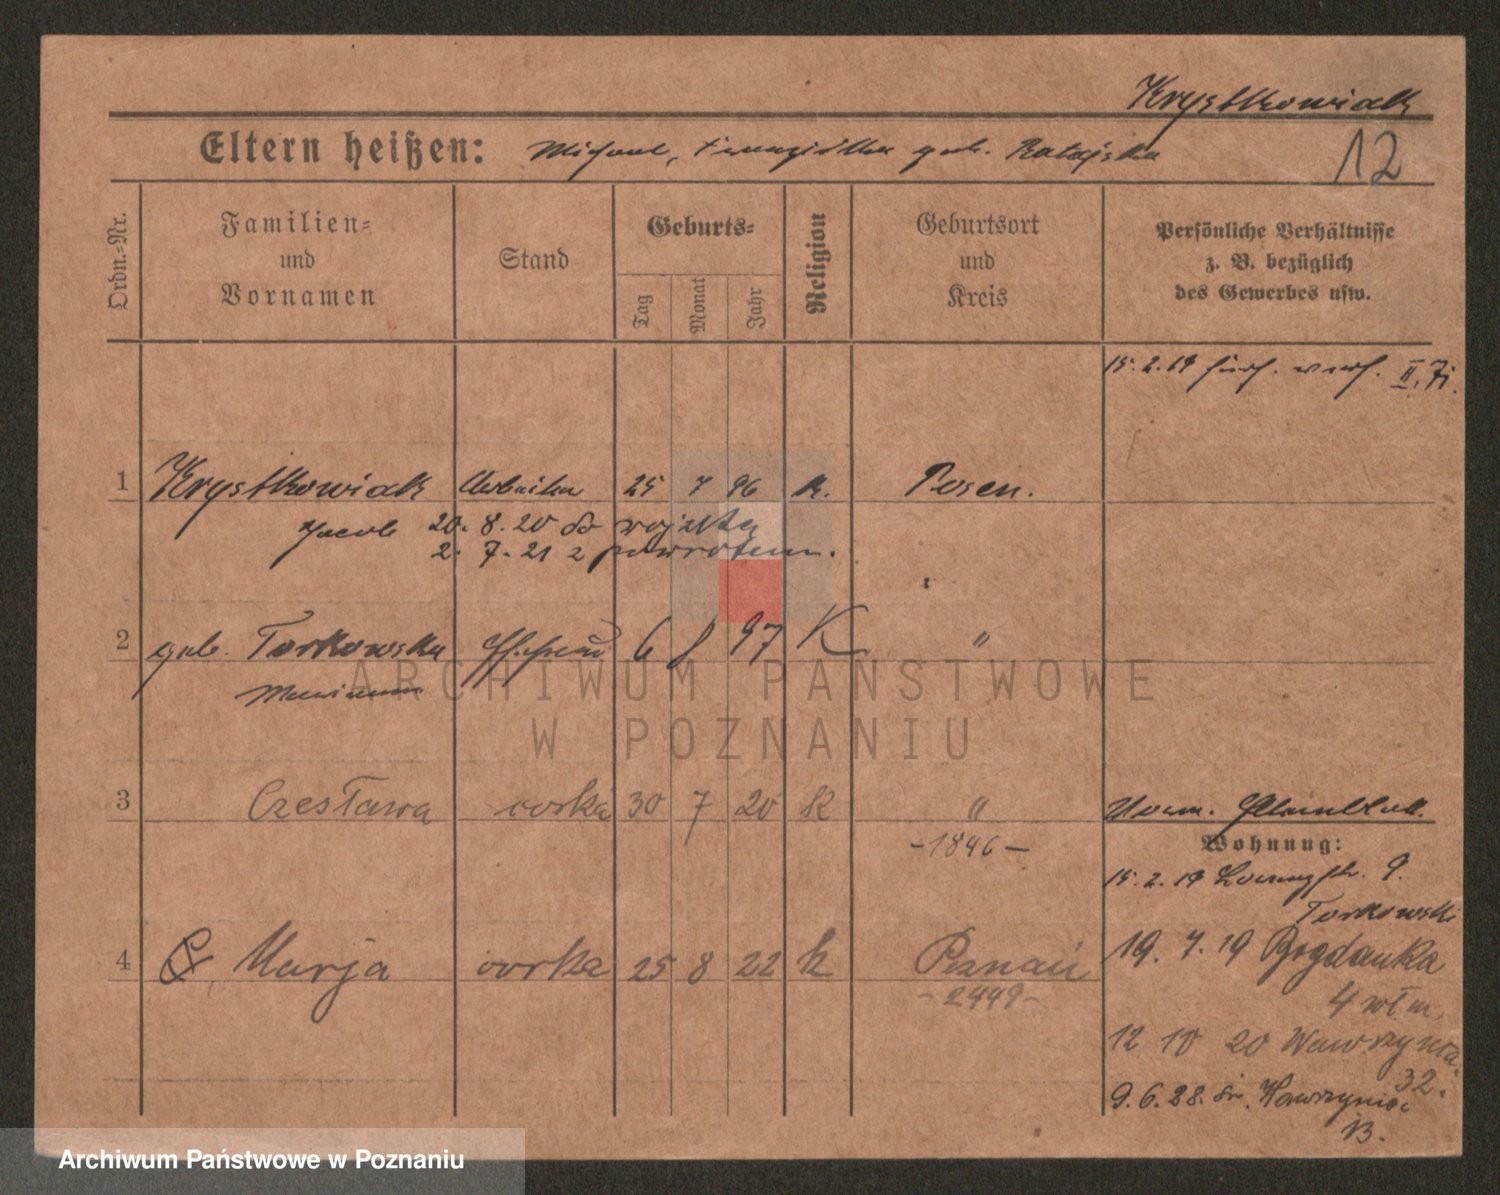 Krystkowiak
Eltern heißen: Michael, Franziska geb. Ratajska
12
Ordn.-Nr.
Familien-
und
Vornamen
Stand
Geburts-
Tag
Monat
Jahr
Religion
Geburtsort
und
Kreis
Persönliche Verhältnisse
z. B. bezüglich
des Gewerbes usw.
15. 2. 19
1 Krystkowiak Arbeiter 25 7 96 k. Posen.
Jacob 20. 8. 20 do wojska
2. 7. 21 z powrotem.
2 geb. Torkowska Ehefrau 6 8 97 K "
Marianna
3 Czesława corka 30 7 20 k "
-1846-
Wohnung:
15. 2. 19 9.
Torkowski
4 Marja corka 25 8 22 k Poznań
-2449-
19. 7. 19 Bogdanka
4 wł. m.
12 10 20 Wawrzyńca
32.
9. 6. 28. Wawrzyńca
13.
ARCHIWUM PAŃSTWOWE
W POZNANIU
Archiwum Państwowe w Poznaniu